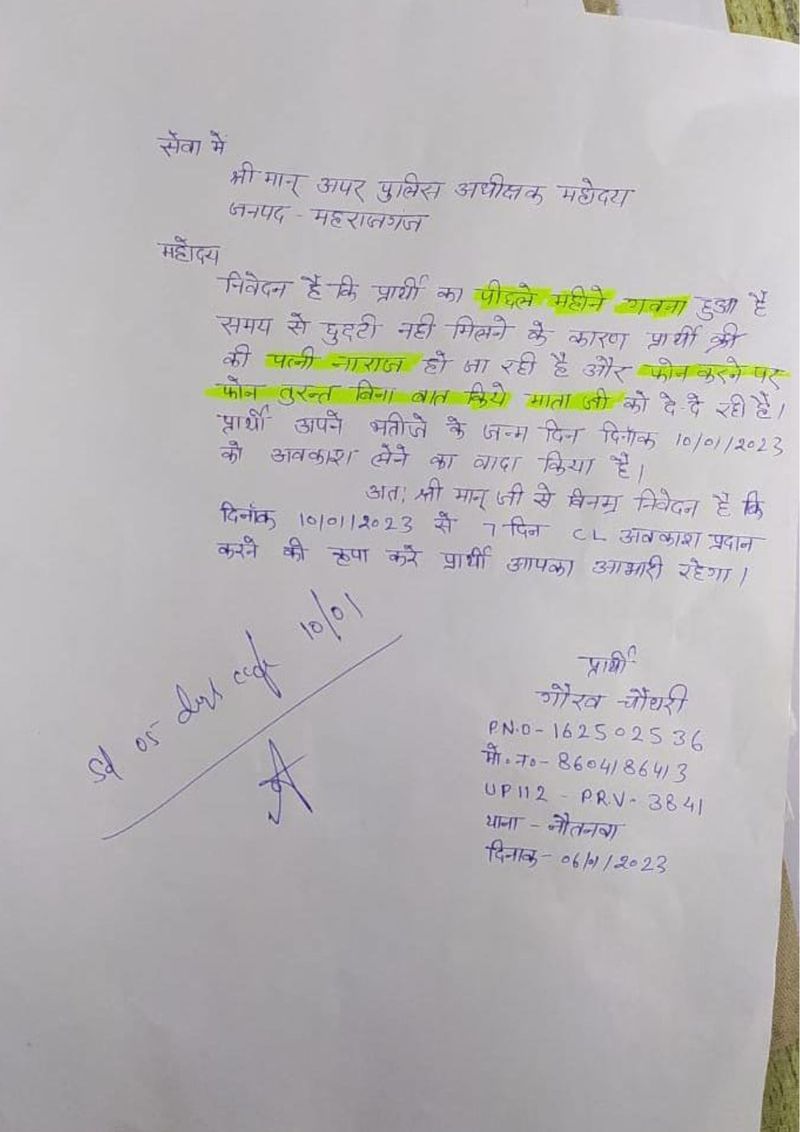 सेवा में
श्री मान् अपर पुलिस अधीक्षक महोदय
जनपद - महराजगज
महोदय
निवेदन है कि प्रार्थी का पीछले महीने गवना हुआ है
समय से छुट्टी नही मिलने के कारण प्रार्थी श्री
की पत्नी नाराज हो जा रही है और फोन करने पर
फोन तुरन्त बिना बात किये माता जी को दे-दे रही है।
प्रार्थी अपने भतीजे के जन्म दिन दिनाक 10/01/2023
को अवकाश लेने का वादा किया है।
अत: श्री मान् जी से विनम्र निवेदन है कि
दिनांक 10/01/2023 से 7 दिन CL अवकाश प्रदान
करने की कृपा करे प्रार्थी आपका आभारी रहेगा।
10/01
प्रार्थी
गौरव चौधरी
P.N.O - 162502536
मो. न० - 8604186413
UP112 - P.R.V - 3841
थाना - नौतनवा
दिनाक - 06/01/2023